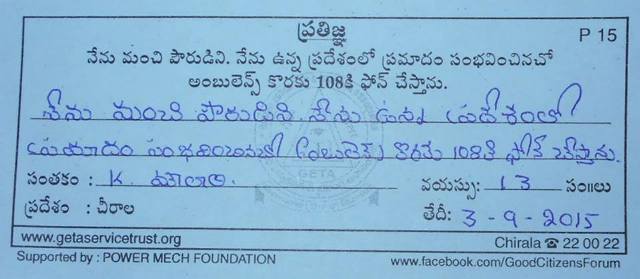 ప్రతిజ్ఞ
P 15
నేను మంచి పౌరుడిని. నేను ఉన్న ప్రదేశంలో ప్రమాదం సంభవించినచో
అంబులెన్స్ కొరకు 108కి ఫోన్ చేస్తాను.
నేను మంచి పౌరుడిని నేను ఉన్న ప్రదేశంలో
ప్రమాదం సంభవించినచో అంబులెన్స్ కొరకు 108కి ఫోన్ చేస్తాను.
సంతకం : K.
వయస్సు: 13 సం॥లు
ప్రదేశం : చీరాల
తేదీ: 3-9-2015
GETA
www.getaservicetrust.org
Chirala ☎ 22 00 22
Supported by : POWER MECH FOUNDATION
www.facebook.com/GoodCitizensForum